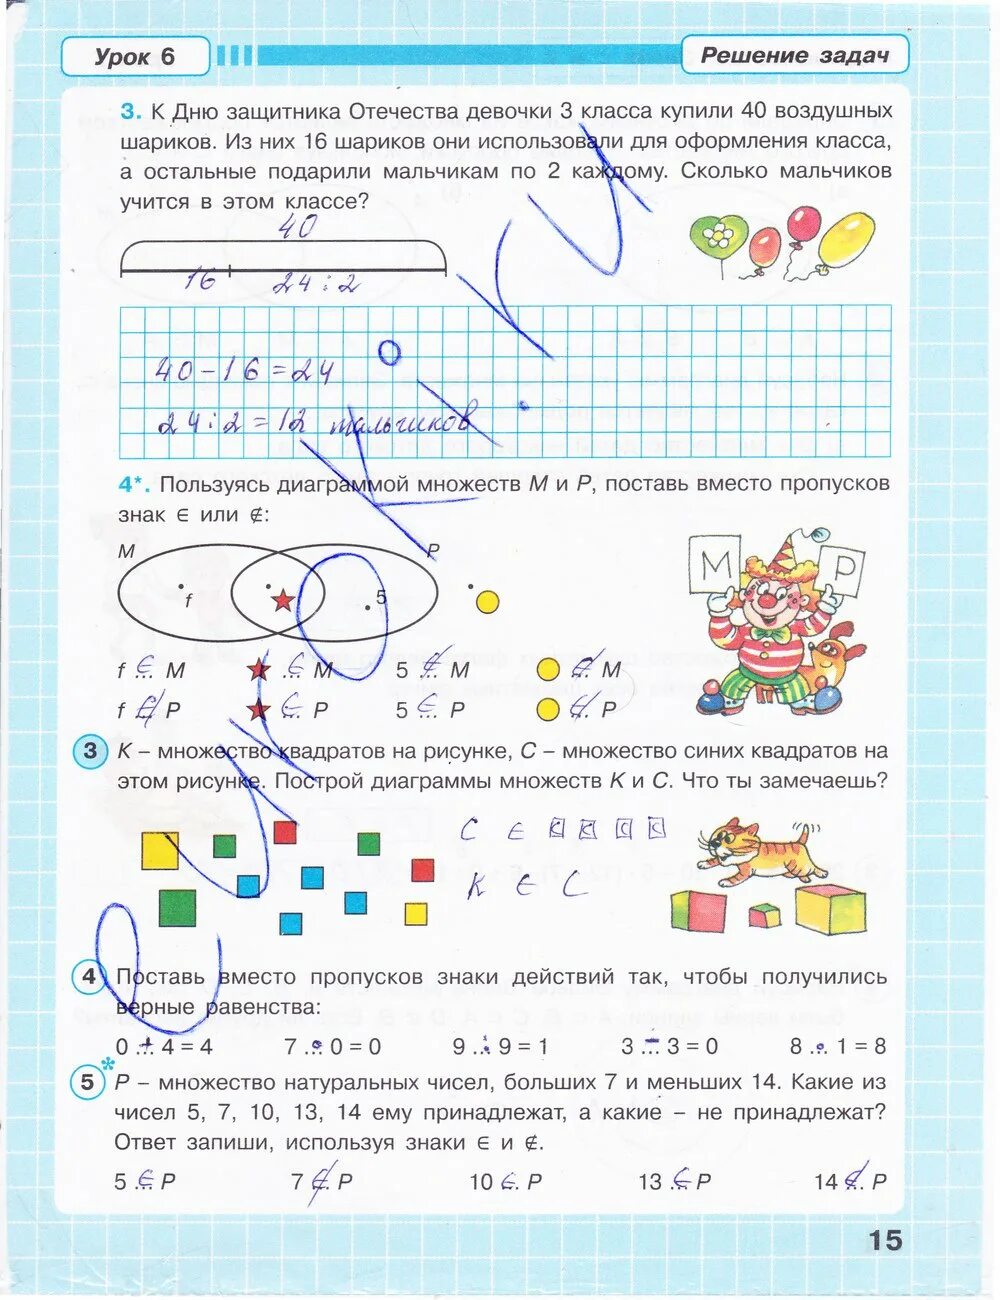 Урок 6
Решение задач
3. К Дню защитника Отечества девочки 3 класса купили 40 воздушных
шариков. Из них 16 шариков они использовали для оформления класса,
а остальные подарили мальчикам по 2 каждому. Сколько мальчиков
учится в этом классе?
40
16 24 : 2
40 - 16 = 24
24 : 2 = 12 мальчиков
4*. Пользуясь диаграммой множеств M и P, поставь вместо пропусков
знак ∈ или ∉:
M P
M P
f 5
f ∈ M ★ ∈ M 5 ∉ M ∉ M
f ∉ P ★ ∈ P 5 ∈ P ∉ P
3 K – множество квадратов на рисунке, C – множество синих квадратов на
этом рисунке. Построй диаграммы множеств K и C. Что ты замечаешь?
C ∈ K K C C
K ∈ C
4 Поставь вместо пропусков знаки действий так, чтобы получились
верные равенства:
0 + 4 = 4 7 · 0 = 0 9 : 9 = 1 3 - 3 = 0 8 · 1 = 8
5* P – множество натуральных чисел, больших 7 и меньших 14. Какие из
чисел 5, 7, 10, 13, 14 ему принадлежат, а какие – не принадлежат?
Ответ запиши, используя знаки ∈ и ∉.
5 ∈ P 7 ∉ P 10 ∈ P 13 ∈ P 14 ∉ P
15